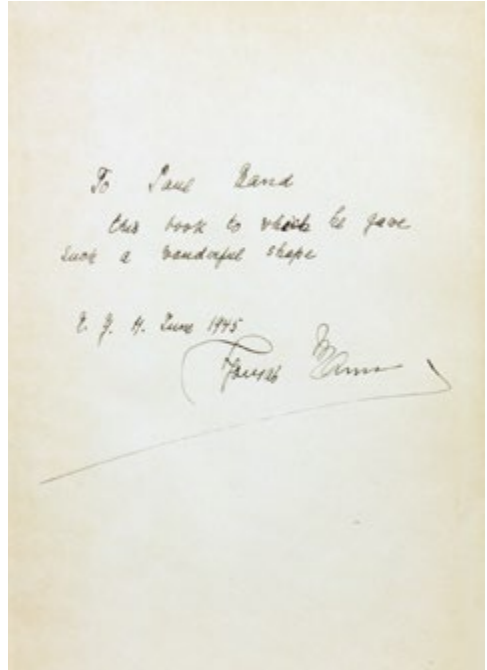 To Paul Rand
this book to which he gave
such a wonderful shape
N. Y. 14. June 1945
Yours